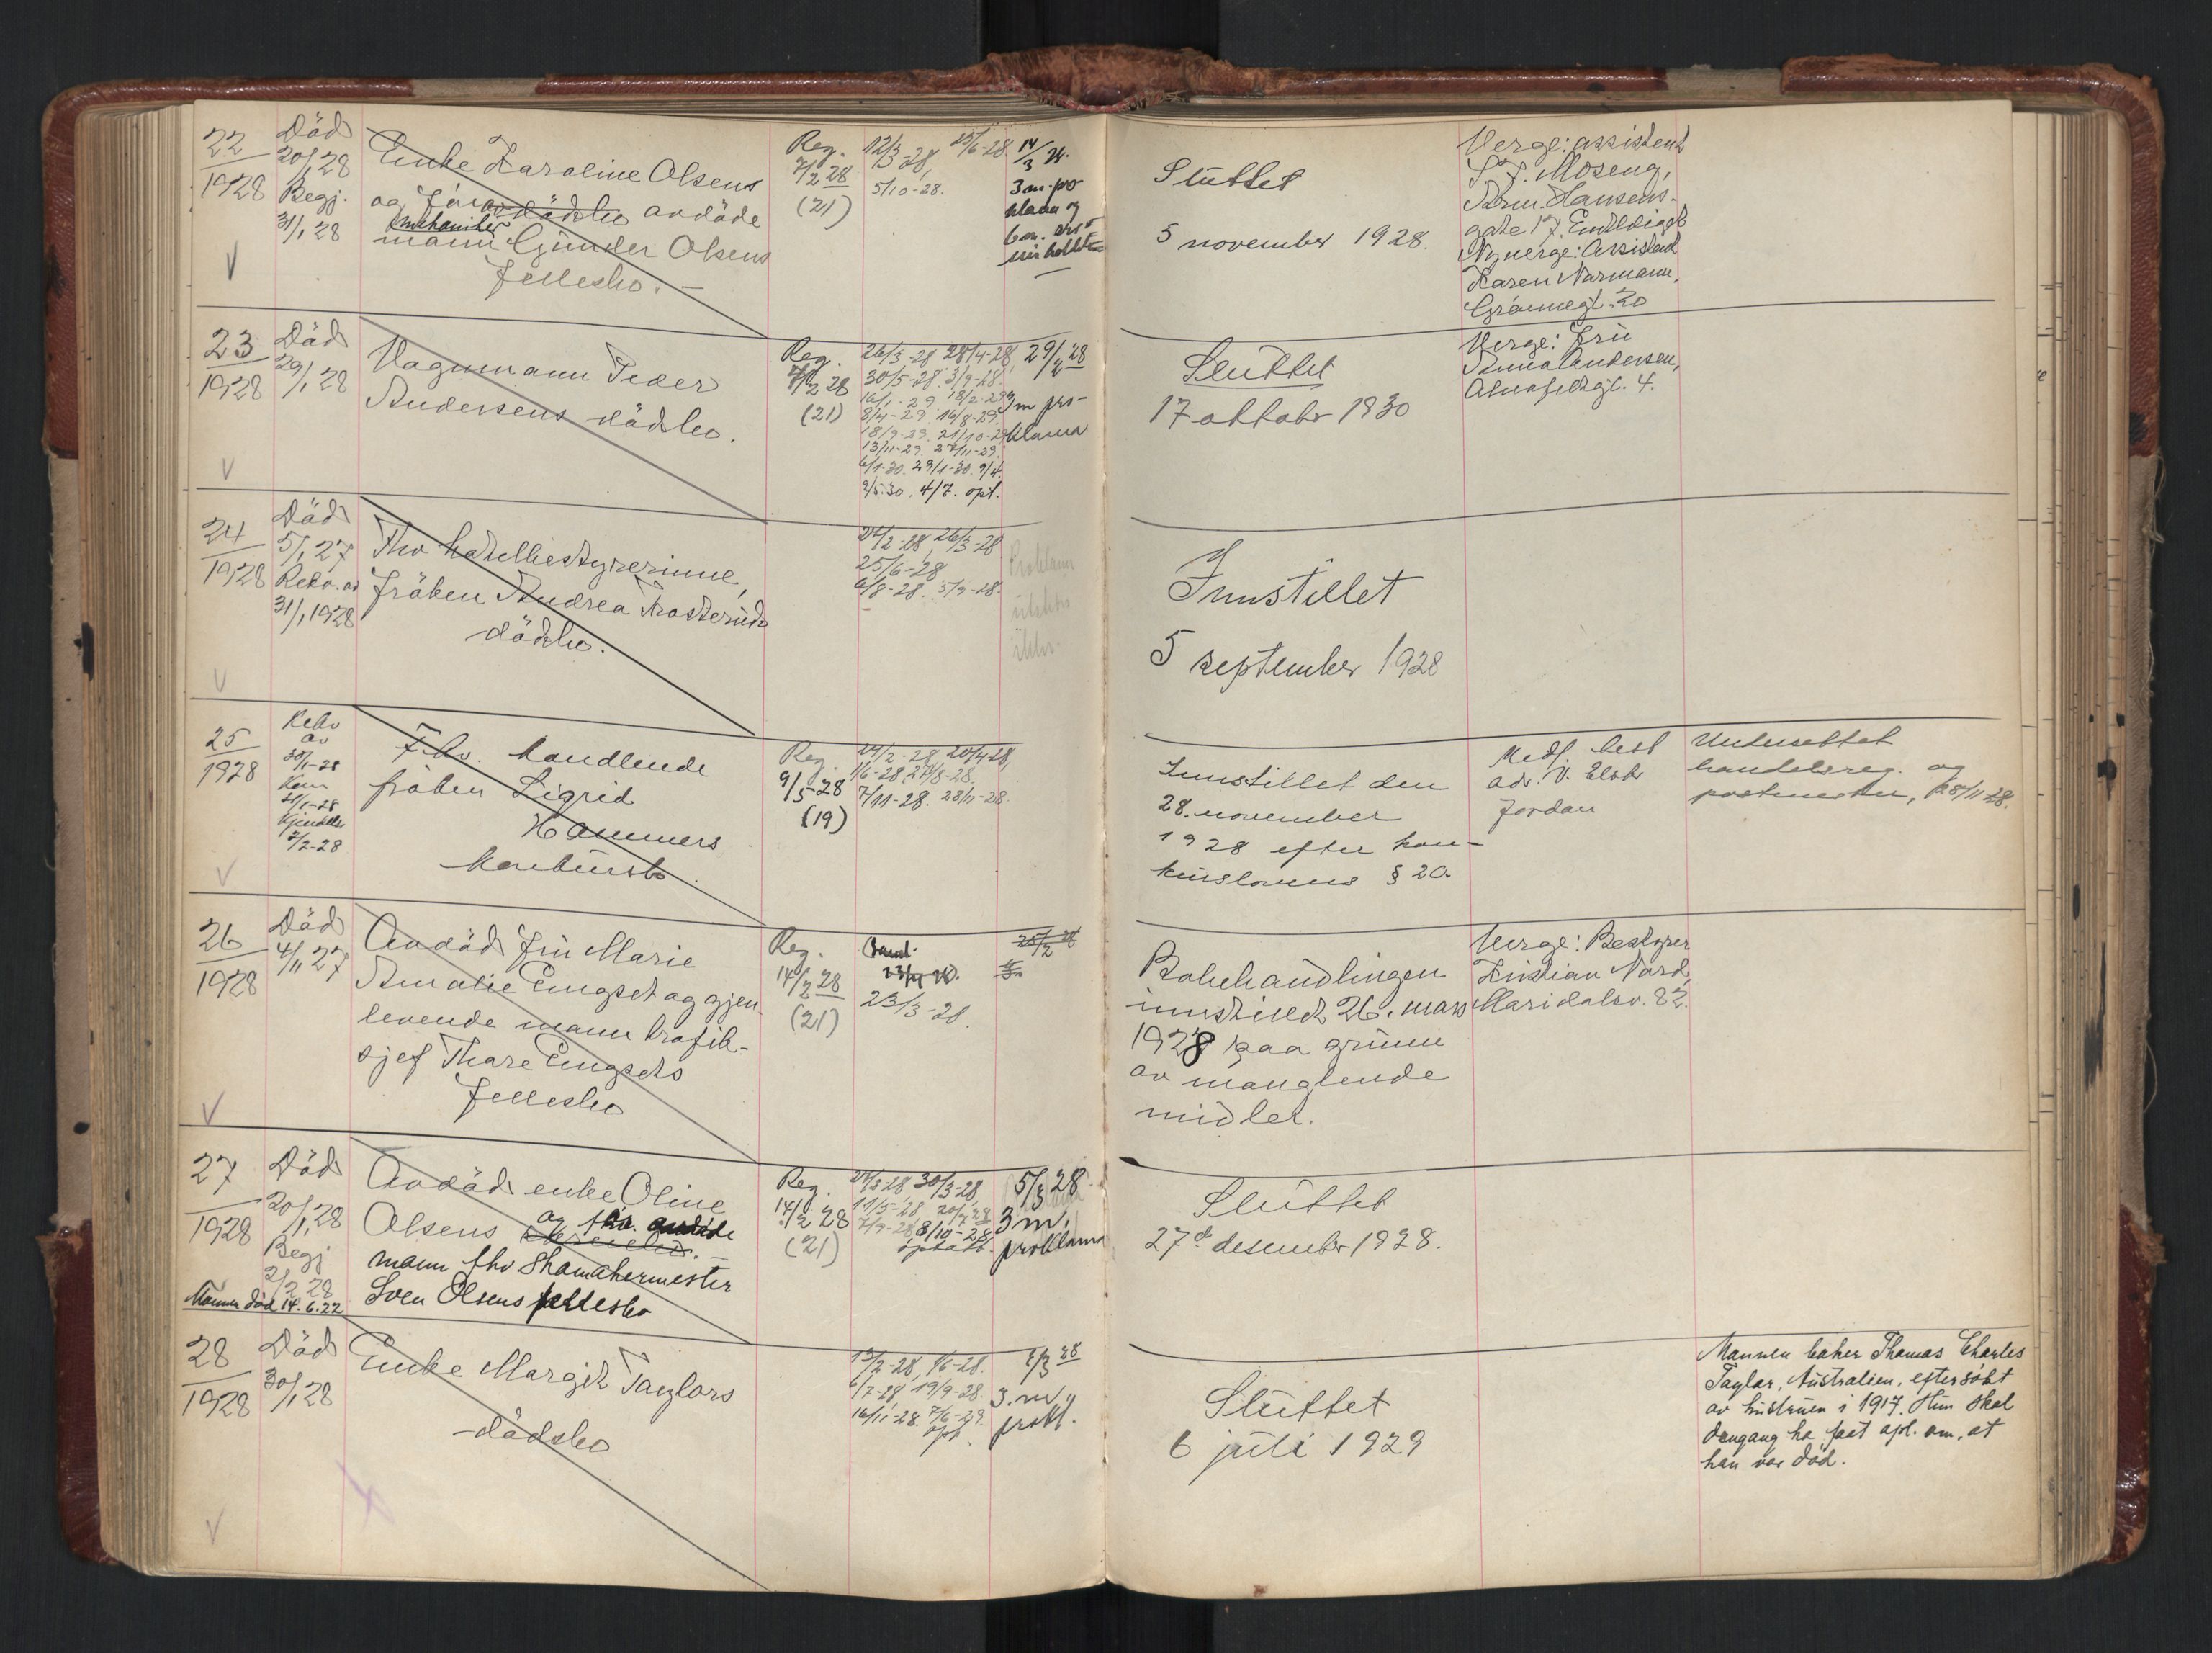 22
1928
Död
20/1 28
Begj.
31/1 28
Enke Karoline Olsens
og før avdöde
mekaniker
mann Gunder Olsens
fellesbo.
Reg.
7/2 28
(21)
12/3 -28,
25/6-28
5/10-28.
14/3
3 m. pro
klama og
Sluttet
5 november 1928.
Verge: assistent
Moseng,
Arm. Hansens-
gate 17. Entlediget
Ny verge: Assistent
Karen Narmann,
Grønnegt. 20
23
1928
Död
29/1 28
Vognmann Peder
Andersens dödsbo.
Reg.
7/2 28
(21)
26/3-28 28/4-28,
30/5-28. 3/9-28.
16/1-29. 18/2-29
8/4-29 16/8-29.
18/9-29. 21/10-29
13/11-29. 27/11-29.
6/1-30. 29/1-30. 9/4.
2/5.30. 4/7. opt.
29/2 28
3 m pro-
klama
Sluttet
17 oktobr 1930
Verge: Fru
Anna Andersen,
gt. 4.
24
1928
Död
5/1 27
Rekv. av
31/1 1928
Fhv hotellbestyrerinne,
fröken Andrea Trosteruds
dödsbo.
24/2-28, 26/3-28
25/6-28
6/8-28. 5/9-28.
Proklama
utstedes
ikke.
Innstillet
5 september 1928
25
1928
Rekv
av
30/1-28
Kom
31/1-28
Kjendelse
2/2-28
Fhv. handlende
fröken Sigrid
Hammers
konkursbo.
Reg.
9/5-28
(19)
24/2-28, 20/4-28,
1/6-28, 27/8-28.
7/11-28. 28/11-28.
Innstillet den
28. november
1928 efter kon-
kurslovens § 20.
Medf. best
adv. V. Elster
Jordan
Underrettet
handelsreg. og
postmester, 28/11 28.
26
1928
Död
4/11 27
Avdöd fru Marie
Amalie Engset og gjen-
levende mann trafik-
sjef Thore Engsets
fellesbo
Reg.
14/2 28
(21)
23/3-28.
Bobehandlingen
innstillet 26. mars
1928 paa grunn
av manglende
midler.
Verge: Bestyrer
Kristian Nord,
Maridalsv. 82.
27
1928
Död
20/1 28
Begj
2/2 28
Mannen död 14.6.22
Avdöd enke Oline
Olsens og fhv. avdöde
mann fhv skomakermester
Sven Olsens fellesbo
Reg.
14/2 28
(21)
24/3-28, 30/3-28
11/5-28 20/7 28
7/9-28 8/10-28
opsatt.
5/3 28
3 m.
proklama
Sluttet
27d desember 1928.
28
1928
Död
30/1 28
Enke Margit Taylors
dödsbo
15/2-28, 1/6-28.
6/7-28 19/9-28.
16/11-28. 7/6-29.
opt.
5/3 28
3. m.
prokl.
Sluttet
6 juli 1929
Mannen baker Thomas Charles
Taylor, Australien, eftersökt
av hustruen i 1917. Hun skal
dengang ha faat opl. om, at
han var död.